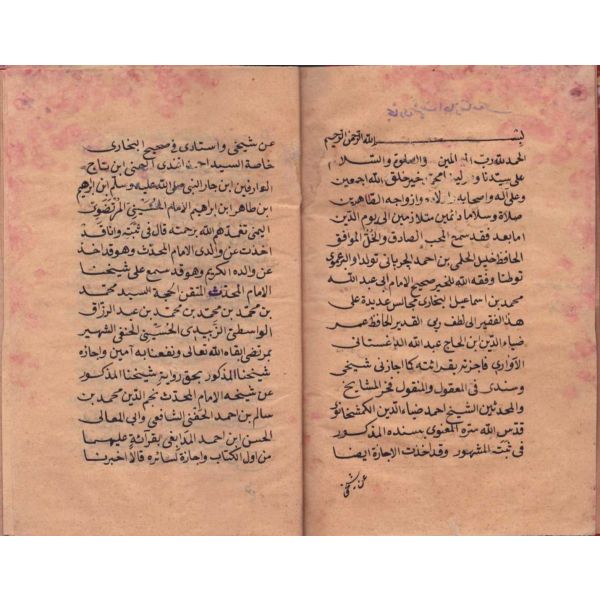 بسم الله الرحمن الرحيم
الحمد لله رب العالمين والصلوة والسلام
على سيدنا محمد خير خلق الله اجمعين
وعلى آله واصحابه وازواجه الطاهرين
صلاة وسلاما دائمين متلازمين الى يوم الدين
اما بعد فقد سمع المحب الصادق والخل الموافق
الحافظ خليل الحلمي بن احمد تولدا
توطنا وفقه الله للخير صحيح الامام ابي عبد الله
محمد بن اسماعيل البخاري مجالس عديدة على
هذا الفقير الى لطف ربي القدير الحافظ عمر
ضياء الدين بن الحاج عبد الله الداغستاني
الآواري فاجزته بقرائته كما اجازني شيخي
وسندي في المعقول والمنقول فخر المشايخ
والمحدثين الشيخ احمد ضياء الدين الكمشخانوي
قدس الله سره المعنوي بسنده المذكور
في ثبته المشهور وقد اخذت الاجازة ايضا
عن شيخي
عن شيخي واستاذي في صحيح البخاري
خاصة السيد احمد افندي الحسني ابن تاج
العارفين ابن جار النبي صلى الله عليه وسلم ابن ابرهيم
ابن طاهر ابن ابرهيم الامام الحسيني المرتضوي
اليمني تغمدهم الله برحمته قال في ثبته وانا قد
اخذت عن والدي الامام المحدث وهو قد اخذ
عن والده الكريم وهو قد سمع على شيخنا
الامام المحدث المتقن الحجة السيد محمد
بن محمد بن محمد بن محمد بن عبد الرزاق
الواسطي الزبيدي الحسيني الحنفي الشهير
بمرتضى ابقاه الله تعالى ونفعنا به آمين واجازه
شيخنا المذكور بحق روايته شيخنا المذكور
عن شيخه الامام المحدث نجم الدين محمد بن
سالم بن احمد الحفني الشافعي وابي المعالي
الحسن ابن احمد المدابغي بقرائة عليهما
من اول الكتاب واجازة لسائره قالا اخبرنا